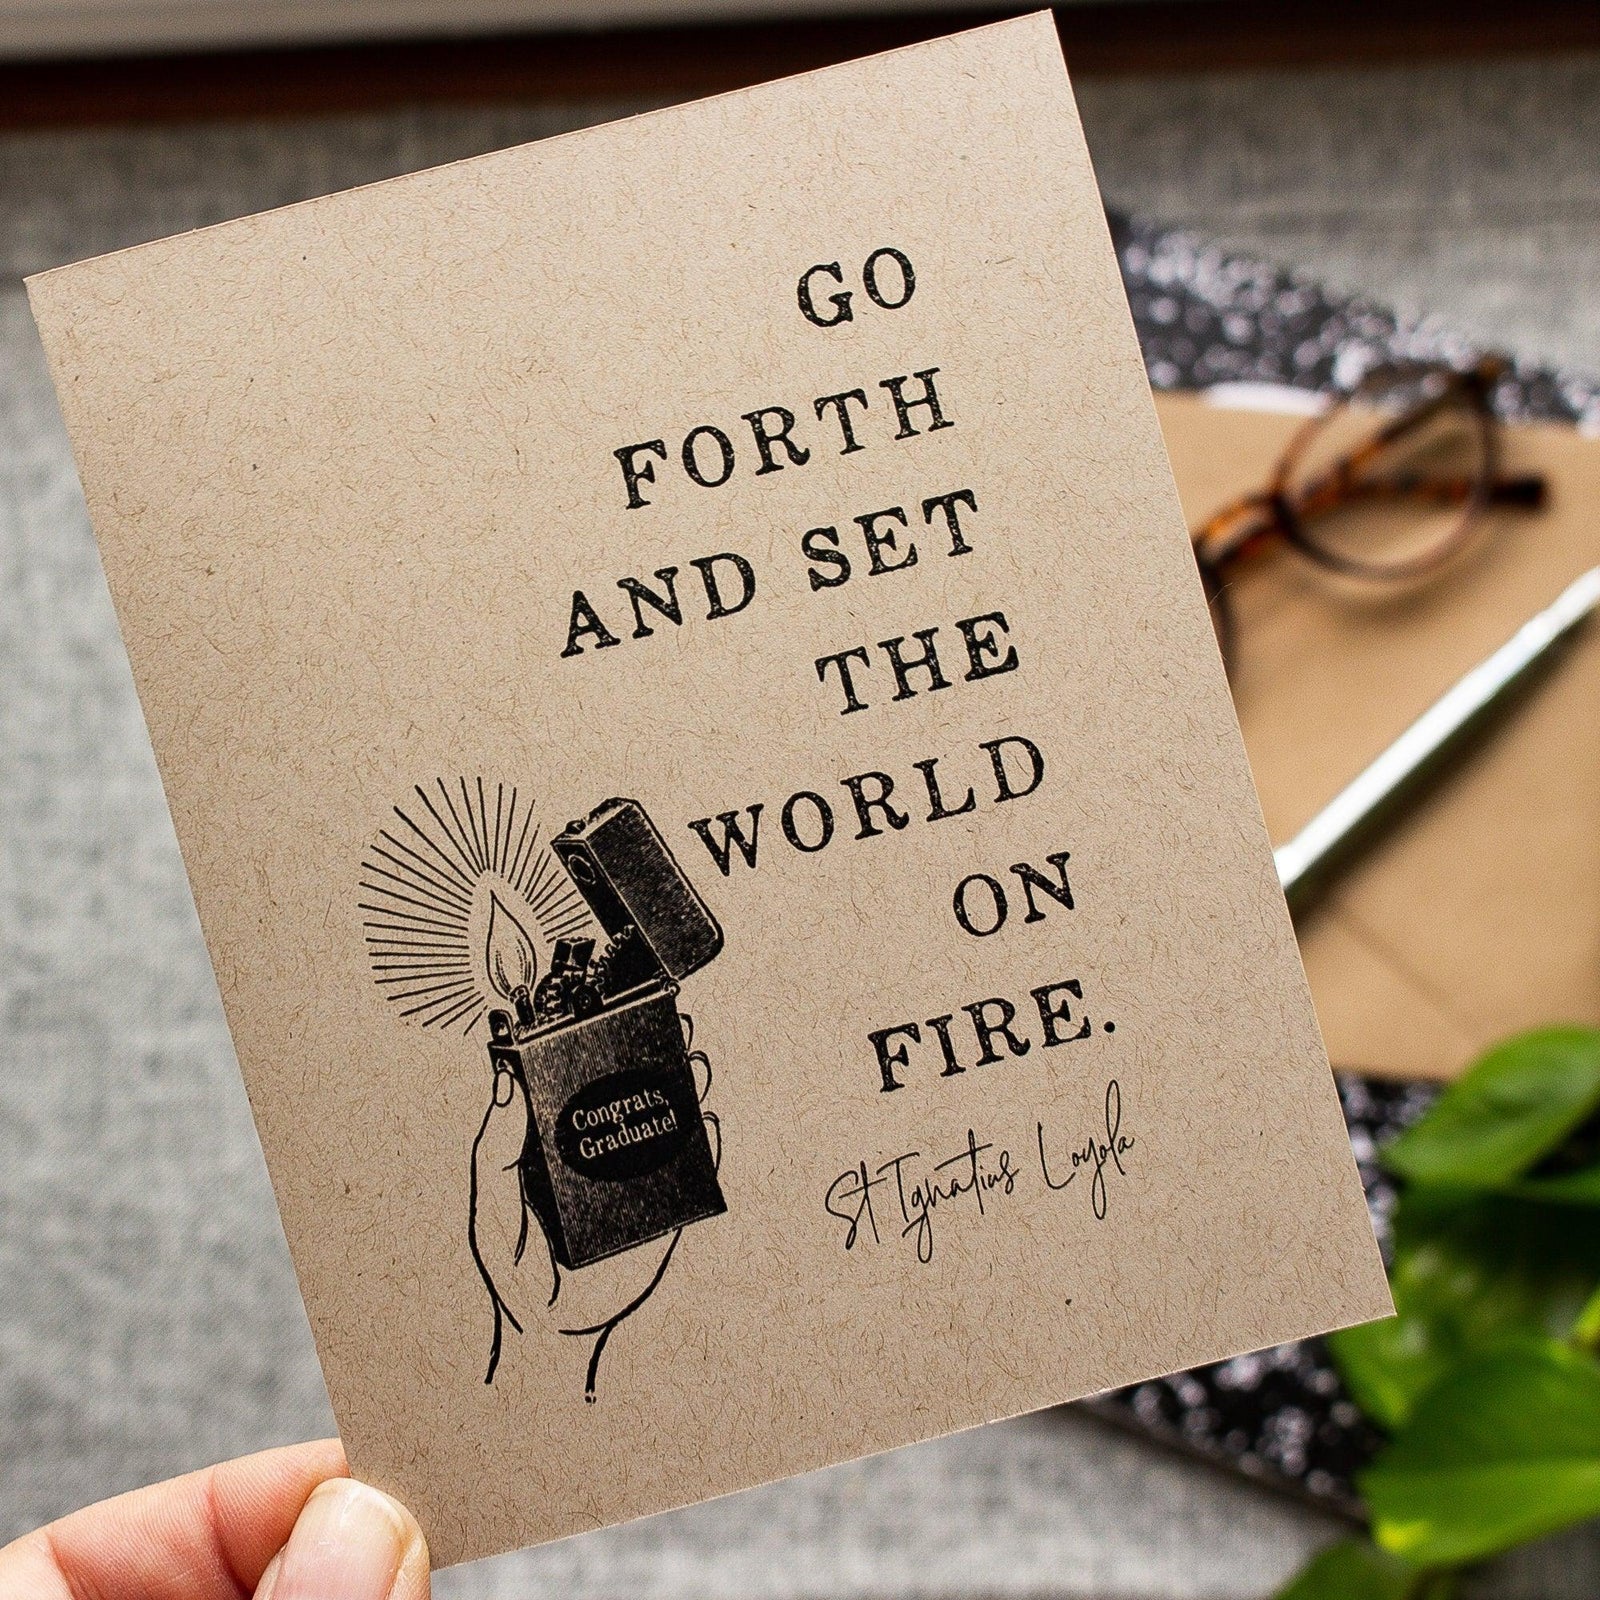 GO
FORTH
AND SET
THE
WORLD
ON
FIRE.
St Ignatius Loyola
Congrats,
Graduate!